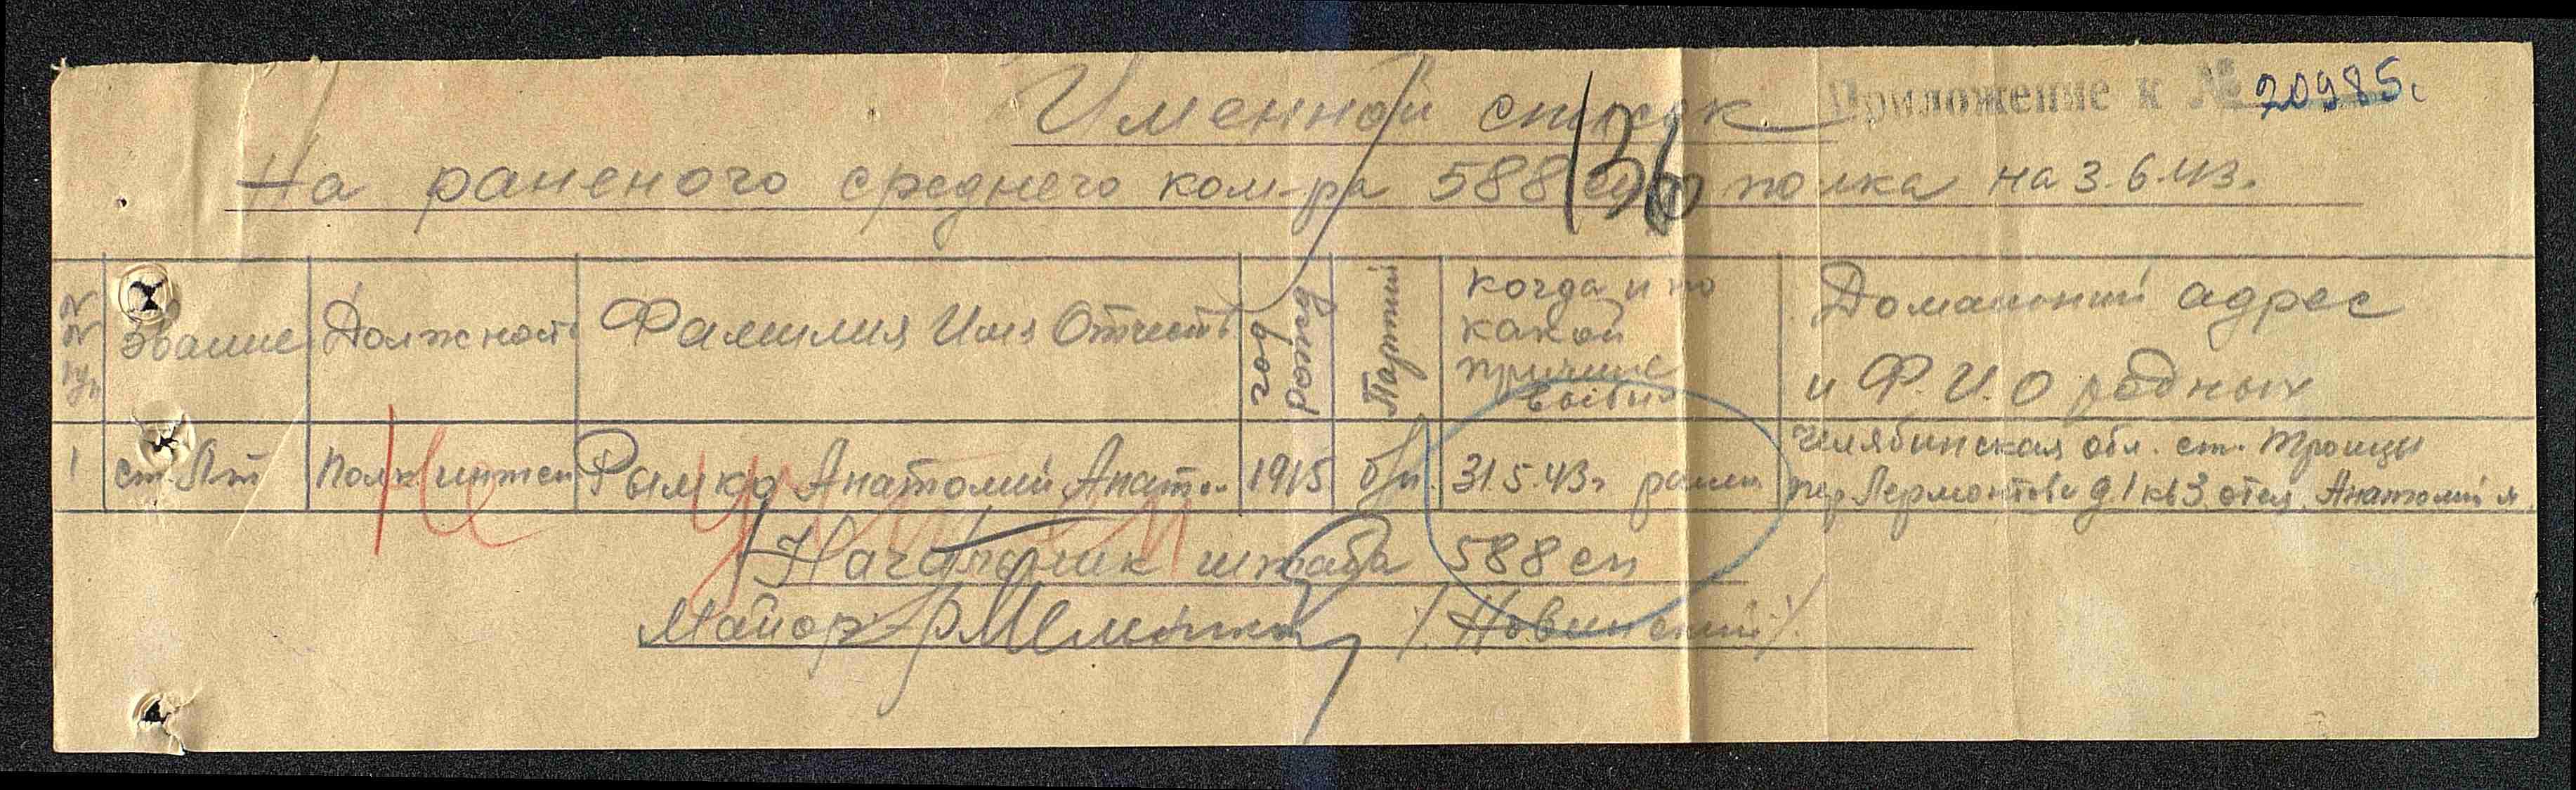 Приложение к № 20985.
Именной список
136
На раненого среднего ком-ра 588 полка на 3.6.43.
Звание
Должность
Фамилия Имя Отчеств
год рожд
Партий
когда и по какой причине выбыл
Домашний адрес и Ф.И.О родных
1
ст. Лт
Полк инжен
Рымко Анатолий Анато..
1915
б/п.
31.5.43г ранен
Челябинская обл. ст. Троицк
пер Лермонтова д 1 кв 3 отец Анатолий
Не учтен
Начальник штаба 588 сп
Майор / Новинский /